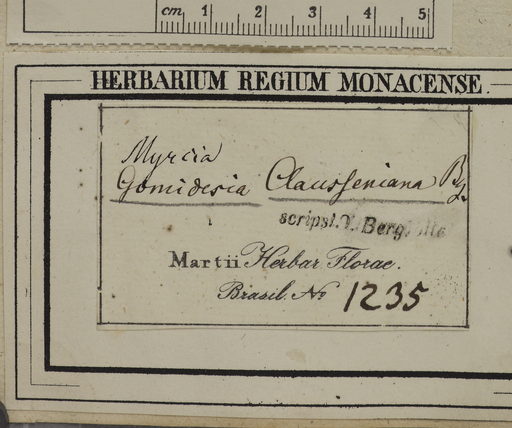 cm 1 2 3 4 5
HERBARIUM REGIUM MONACENSE.
Myrcia
Gomidesia Clausseniana Bg.
scripsit. Berg.
Martii Herbar. Florae.
Brasil. No 1235